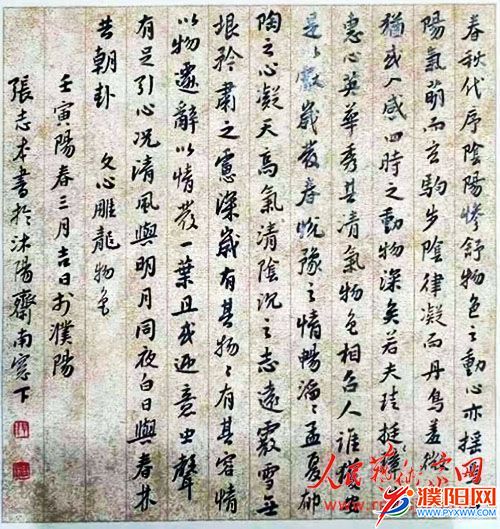 春秋代序陰陽慘舒物色之動心亦搖焉
陽氣萌而玄駒步陰律凝而丹鳥羞微
猶或入感四時之動物深矣若夫珪挺其
惠心英華秀其清氣物色相召人誰獲安
是以獻歲發春悅豫之情暢滔〻孟夏郁
陶之心凝天高氣清陰沉之志遠霰雪無
垠矜肅之慮深歲有其物〻有其容情
以物遷辭以情發一葉且或迎意虫聲
有足引心況清風與明月同夜白日與春林
共朝卦 文心雕龍物色
壬寅陽春三月吉日於濮陽
張志本書於沐陽齋南窓下
濮阳网
WWW.PYXWW.COM